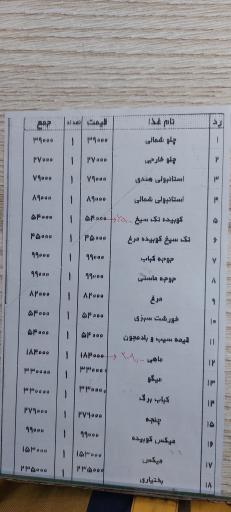 رد نام غذا قیمت تعداد جمع
۱ چلو شمالی ۳۹۰۰۰ ۱ ۳۹۰۰۰
۲ چلو خارجی ۲۷۰۰۰ ۱ ۲۷۰۰۰
۳ استانبولی هندی ۷۹۰۰۰ ۱ ۷۹۰۰۰
۴ استانبولی شمالی ۸۹۰۰۰ ۱ ۸۹۰۰۰
۵ کوبیده تک سیخ ۵۴۰۰۰ ۱ ۵۴۰۰۰
۶ تک سیخ کوبیده مرغ ۴۵۰۰۰ ۱ ۴۵۰۰۰
۷ جوجه کباب ۹۹۰۰۰ ۱ ۹۹۰۰۰
۸ جوجه ماستی ۹۹۰۰۰ ۱ ۹۹۰۰۰
۹ مرغ ۸۲۰۰۰ ۱ ۸۲۰۰۰
۱۰ خورشت سبزی ۵۴۰۰۰ ۱ ۵۴۰۰۰
۱۱ قیمه سیب و بادمجون ۵۴۰۰۰ ۱ ۵۴۰۰۰
۱۲ ماهی ۱۸۴۰۰۰ ۱ ۱۸۴۰۰۰
۱۳ میگو ۳۳۰۰۰۰ ۱ ۳۳۰۰۰۰
۱۴ کباب برگ ۳۳۰۰۰۰ ۱ ۳۳۰۰۰۰
۱۵ چنجه ۲۷۹۰۰۰ ۱ ۲۷۹۰۰۰
۱۶ میکس کوبیده ۹۹۰۰۰ ۱ ۹۹۰۰۰
۱۷ میکس ۱۵۳۰۰۰ ۱ ۱۵۳۰۰۰
۱۸ بختیاری ۲۳۵۰۰۰ ۱ ۲۳۵۰۰۰